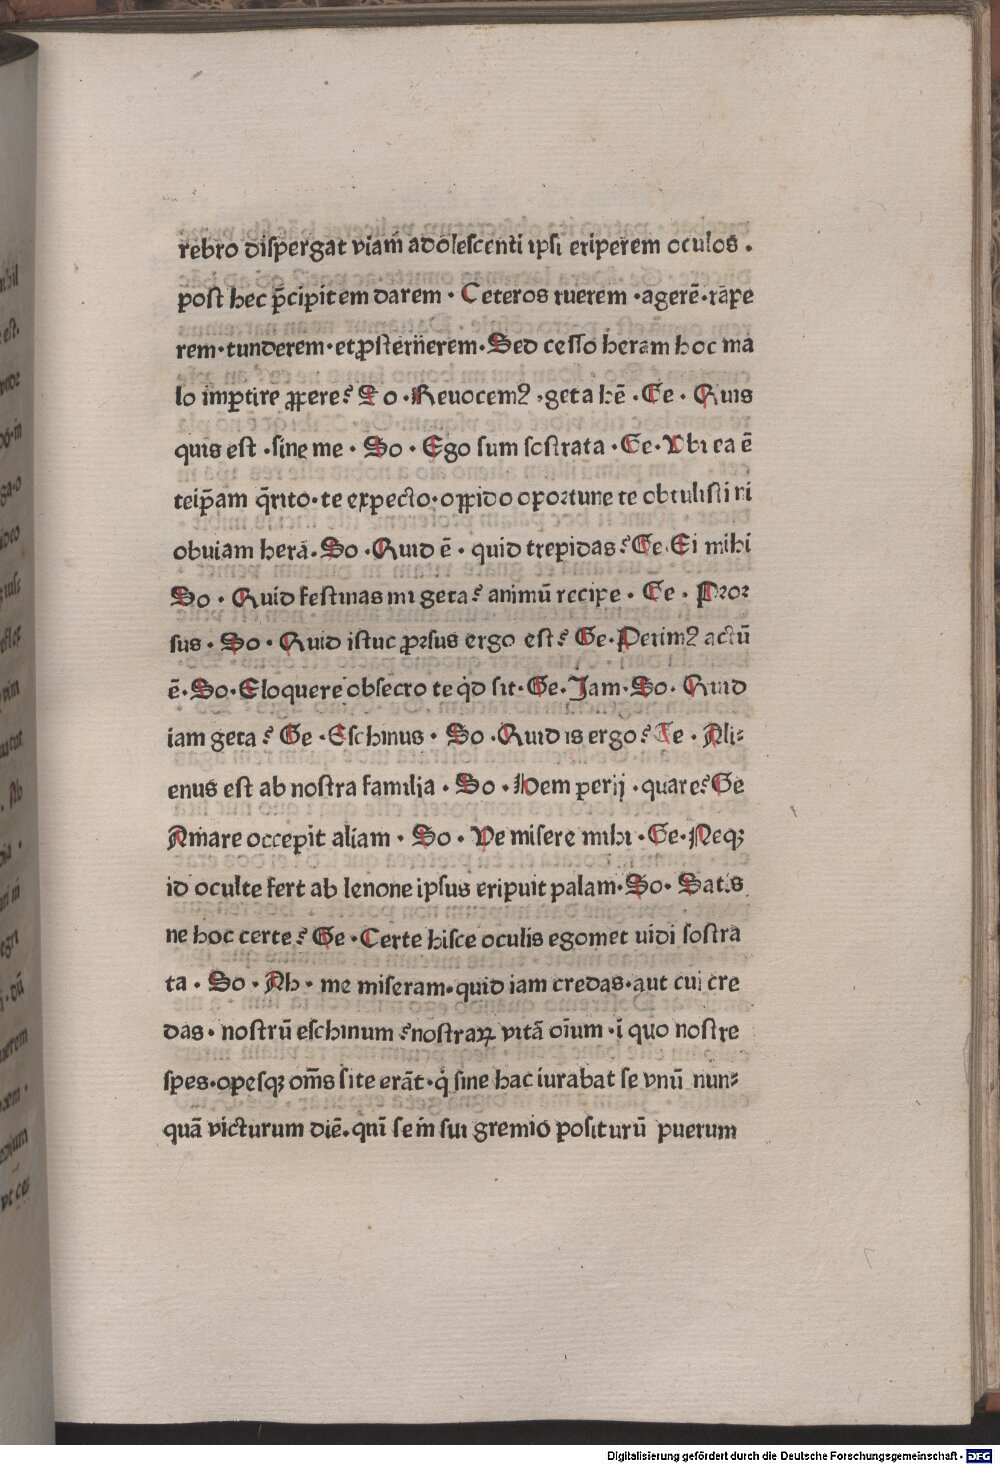 rebro dispergat viam̄ adolescenti ipsi eriperem oculos .
post hec p̄cipitem darem · Ceteros ruerem · agerē · rape
rem · tunderem · et ꝓsternerem · Sed cesso heram hoc ma
lo imꝑtire ꝓpere? So · Reuocemꝰ · geta hē · Ge · Quis
quis est · sine me · So · Ego sum sostrata · Ge · Vbi ea ē
teip̄am q̄rito · te expecto · oppido oportune te obtulisti
obuiam herā · So · Quid ē · quid trepidas? Ge · Ei mihi
So · Quid festinas mi geta? animū recipe · Ge · Pror
sus · So · Quid istuc prorsus ergo est? Ge · Perimꝰ actū
ē · So · Eloquere obsecro te qd̄ sit · Ge · Jam · So · Quid
iam geta? Ge · Eschinus · So · Quid is ergo? Ge · Ali⸗
enus est ab nostra familia · So · Hem perij · quare? Ge
Amare occepit aliam · So · Ve misere mihi · Ge · Neqꝫ
id oculte fert ab lenone ipsus eripuit palam · So · Satis
ne hoc certe? Ge · Certe hisce oculis egomet uidi sostra
ta · So · Ah · me miseram · quid iam credas · aut cui cre
das · nostrū eschinum? nostraꝝ vitā oīum · ī quo nostre
spes · opesqꝫ om̄s site erāt · q̇ sine hac iurabat se vnū nun⸗
quā victurum diē · qui se in sui gremio positurū puerum
Digitalisierung gefördert durch die Deutsche Forschungsgemeinschaft - DFG